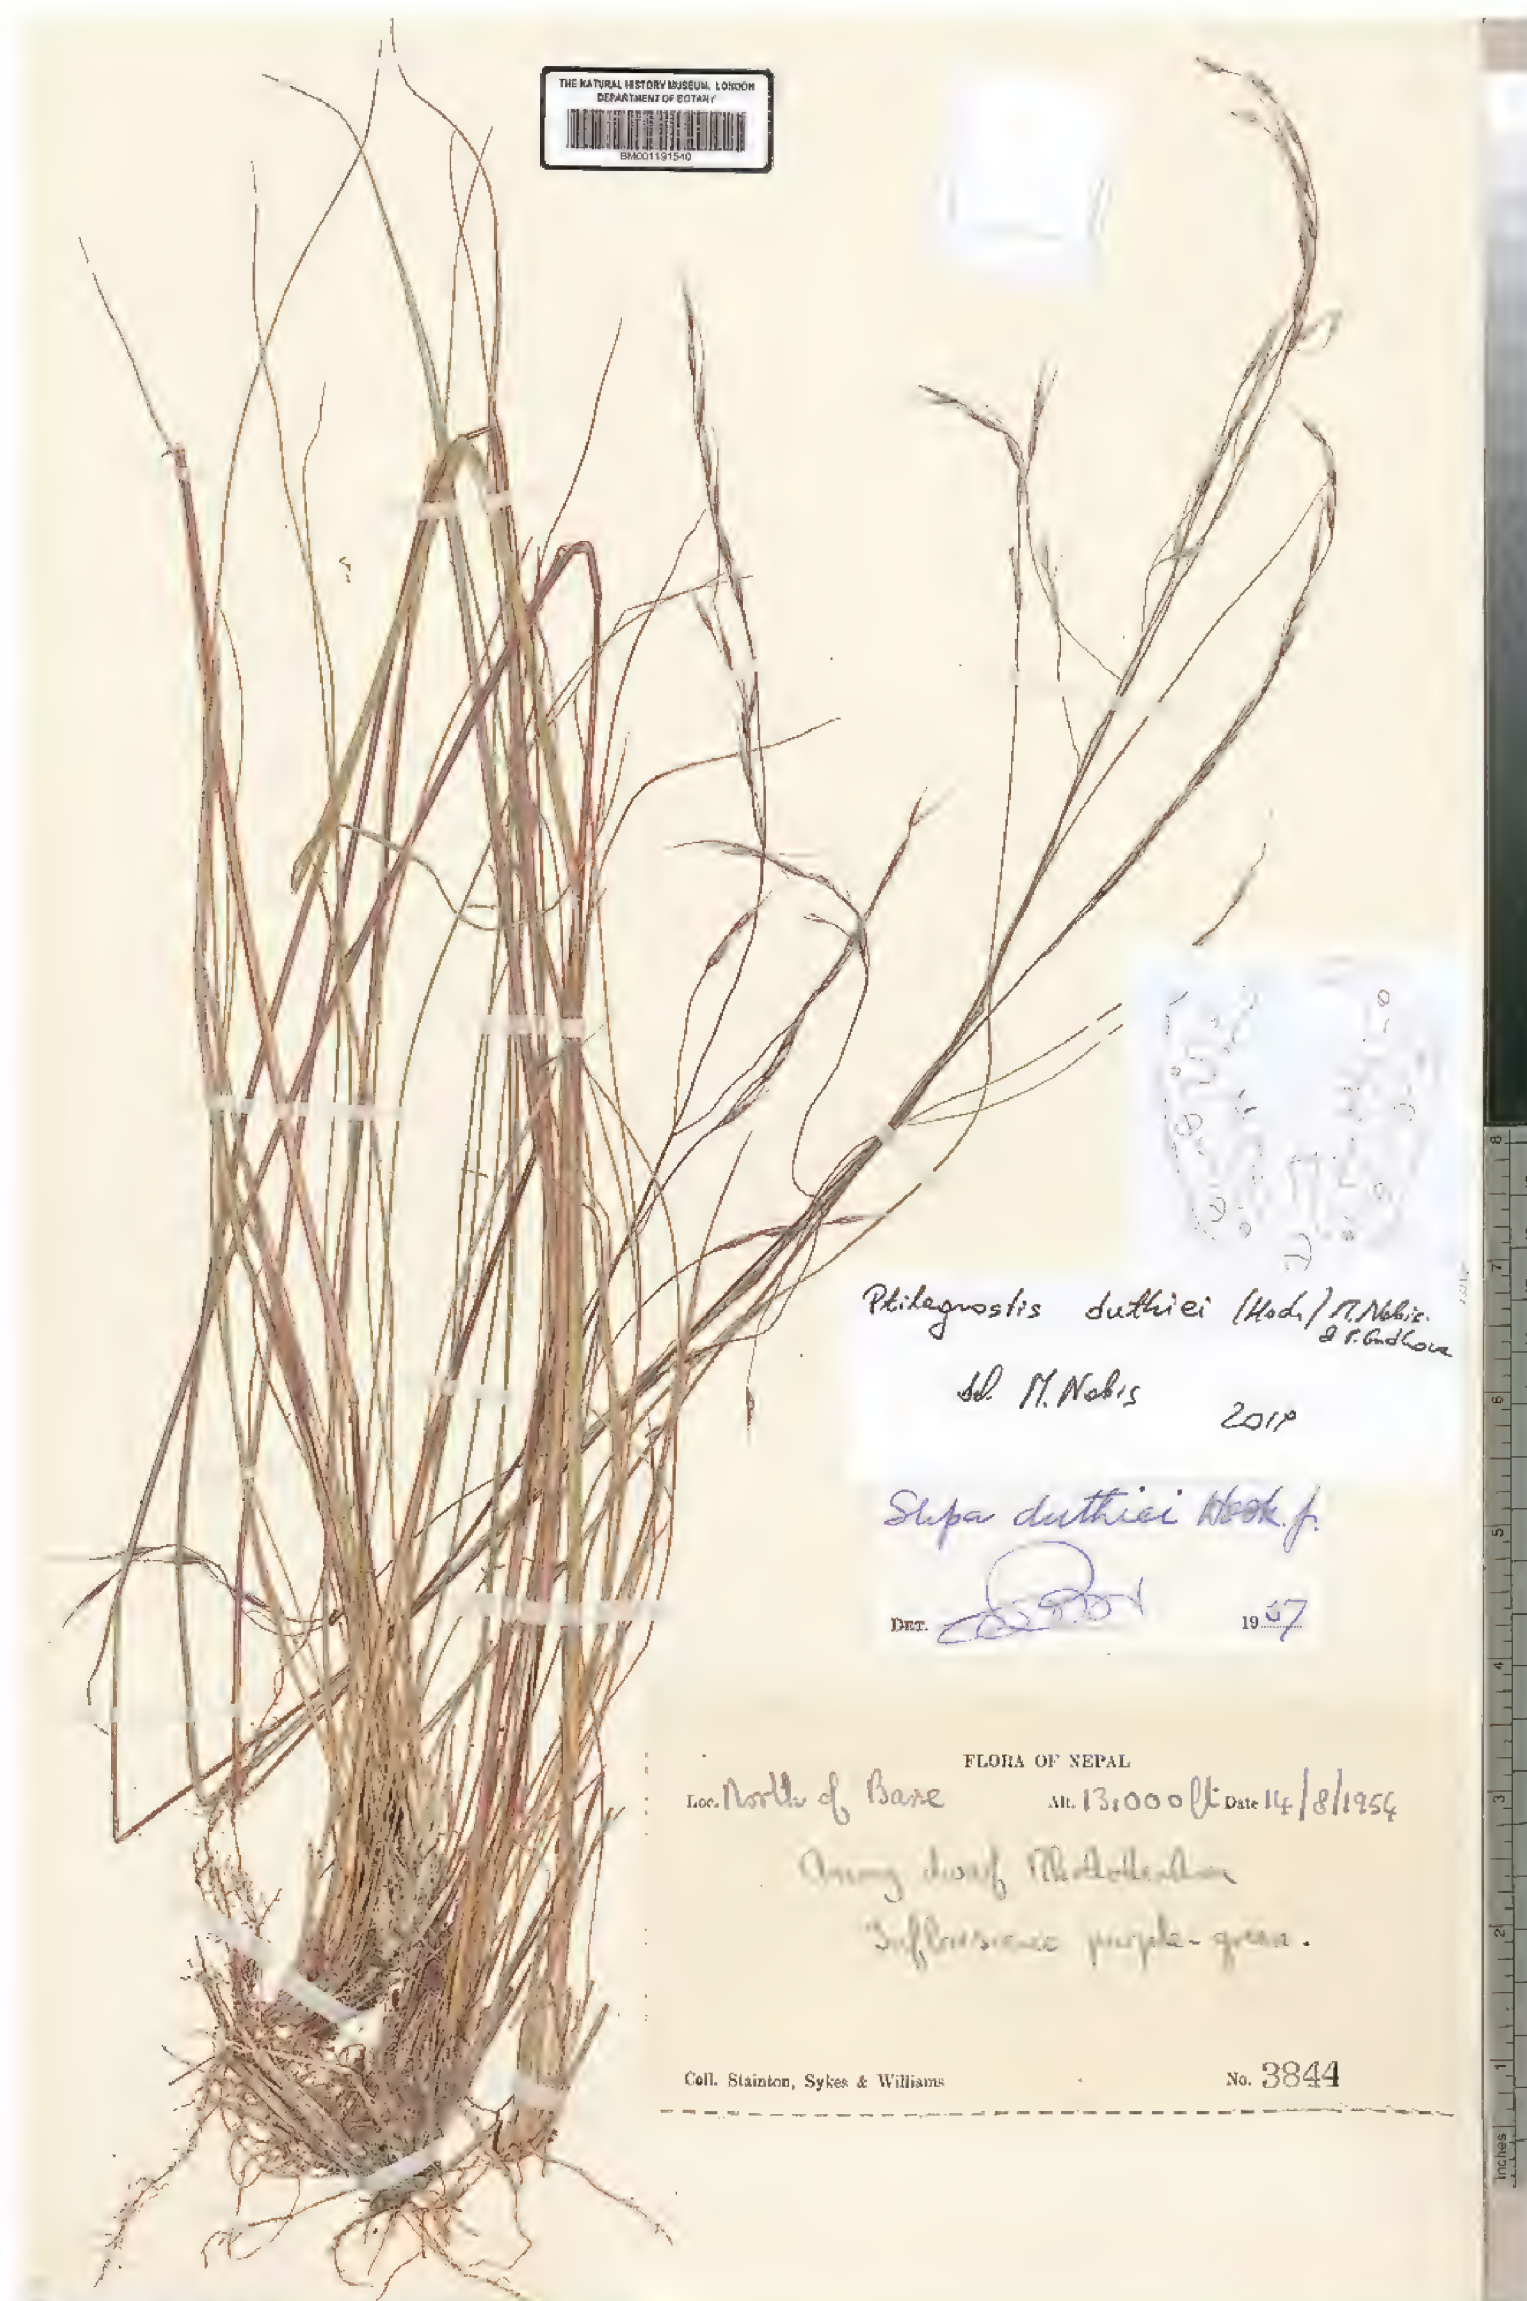 THE NATURAL HISTORY MUSEUM, LONDON
DEPARTMENT OF BOTANY
BM001191540
Ptilagrostis duthiei (Hook.) M.Nobis
&
M. Nobis
Stipa duthiei Hook. f.
DET. 1957
FLORA OF NEPAL
Loc. North of Barse Alt. 13,000 ft Date 14/8/1954
Among dwarf Rhododendron
Inflorescence purple-green.
Coll. Stainton, Sykes & Williams No. 3844
8
7
6
5
4
3
2
1
inches